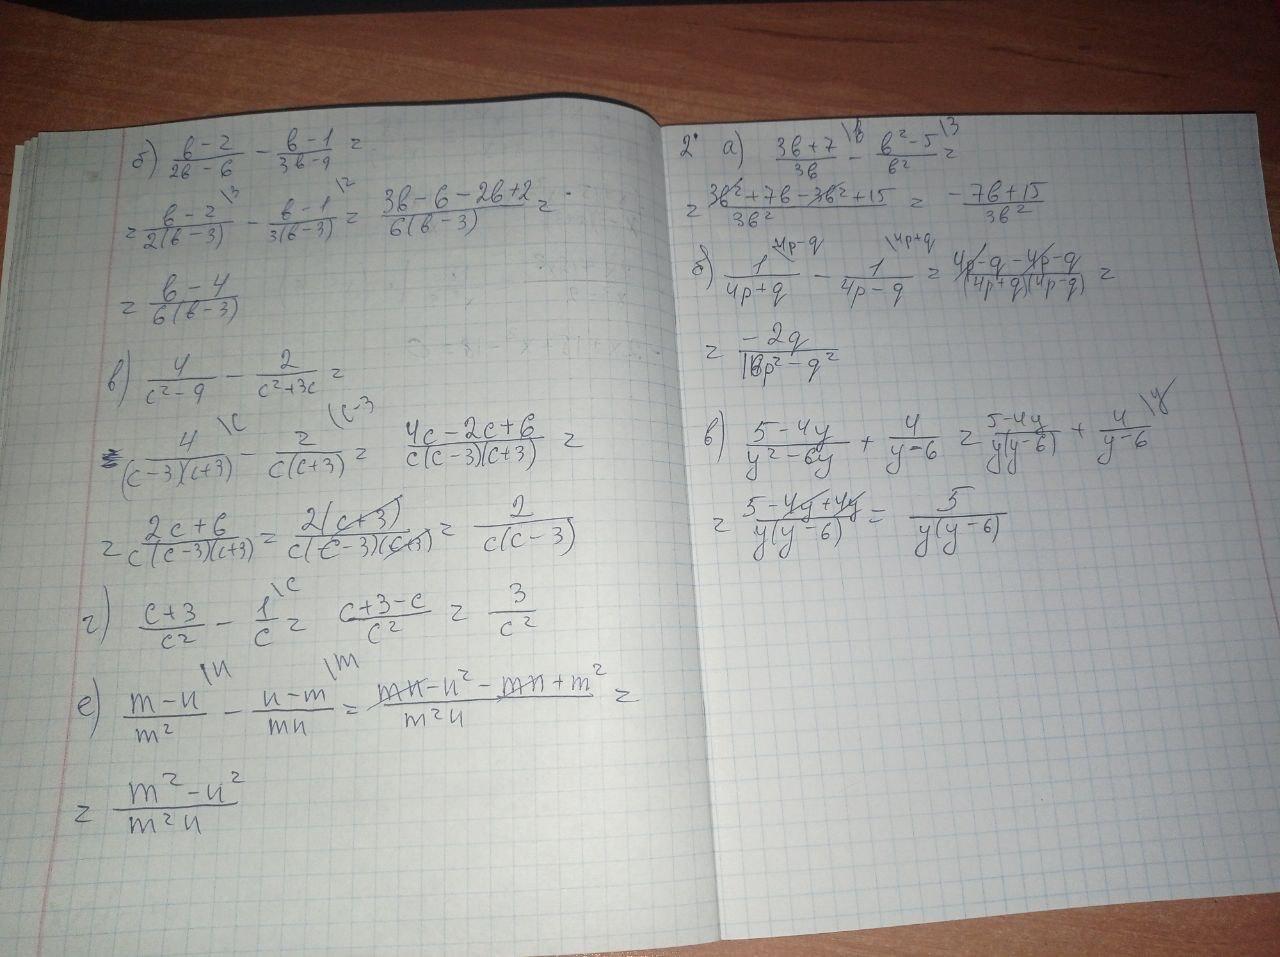 б) (в-2)/(2в-6) - (в-1)/(3в-9) =
= (в-2)/(2(в-3)) \3 - (в-1)/(3(в-3)) \2 = (3в-6-2в+2)/(6(в-3)) =
= (в-4)/(6(в-3))
в) 4/(c²-9) - 2/(c²+3c) =
= 4/((c-3)(c+3)) \c - 2/(c(c+3)) \c-3 = (4c-2c+6)/(c(c-3)(c+3)) =
= (2c+6)/(c(c-3)(c+3)) = 2(c+3)/(c(c-3)(c+3)) = 2/(c(c-3))
г) (c+3)/c² - 1/c \c = (c+3-c)/c² = 3/c²
е) (m-n)/m² \n - (n-m)/(mn) \m = (mn-n²-mn+m²)/(m²n) =
= (m²-n²)/(m²n)
2. а) (3в+7)/(3в) \в - (в²-5)/в² \3 =
= (3в²+7в-3в²+15)/(3в²) = -(7в+15)/(3в²)
б) 1/(4p+q) \4p-q - 1/(4p-q) \4p+q = (4p-q-4p-q)/((4p+q)(4p-q)) =
= (-2q)/(16p²-q²)
в) (5-4y)/(y²-6y) + 4/(y-6) = (5-4y)/(y(y-6)) + 4/(y-6) \y
= (5-4y+4y)/(y(y-6)) = 5/(y(y-6))